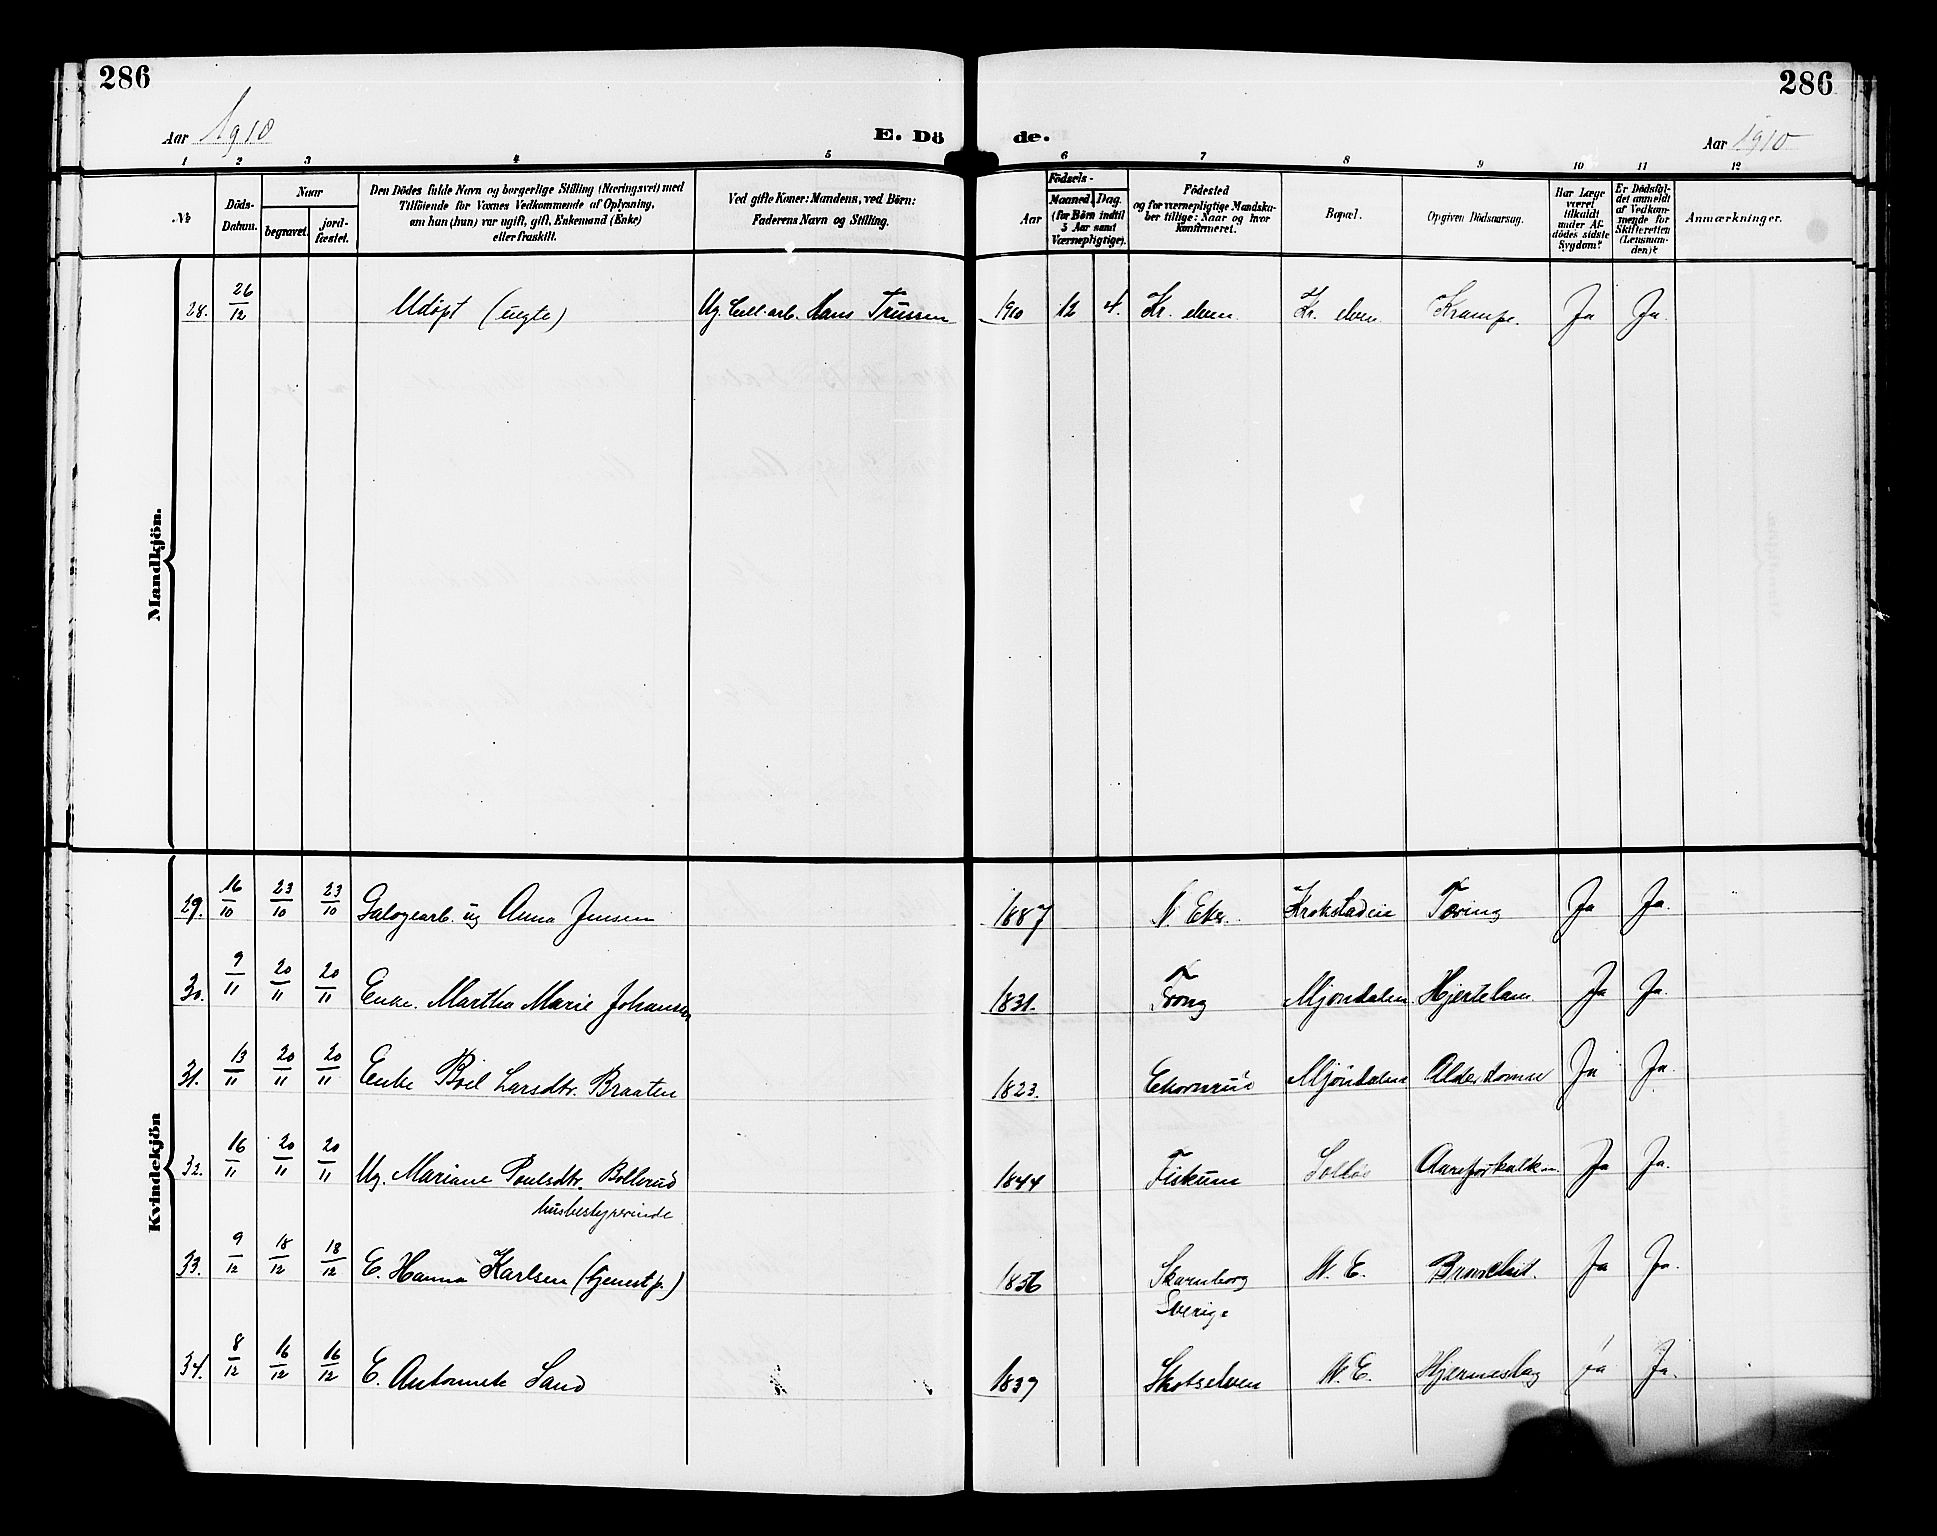 286
286
Aar 1910
E. Dö
de.
Aar 1910
1 2 3 4 5 6 7 8 9 10 11 12
No
Döds-Datum.
Naar
begravet.
jord-fæstet.
Den Dödes fulde Navn og borgerlige Stilling (Næringsvei) med
Tilföiende for Voxnes Vedkommende af Oplysning,
om han (hun) var ugift, gift, Enkemand (Enke)
eller fraskilt.
Ved gifte Koner: Mandens, ved Börn:
Faderens Navn og Stilling.
Födsels-
Aar
Maaned. Dag.
(for Börn indtil
5 Aar samt
Værnepligtige).
Födested
og for værnepligtige Mandska-
ber tillige: Naar og hvor
konfirmeret.
Bopæl.
Opgiven Dödsaarsag.
Har Læge
været
tilkaldt
under Af-
dödes sidste
Sygdom?
Er Dödsfal-
det anmeldt
af Vedkom-
mende for
Skifteretten
(Lensman-
den)?
Anmærkninger.
Mandkjön.
28. 26/12 Udøpt (uegte) Ug. Cell. arb. Hans Trussen 1910 12 4. Kr. elven Kr. elven Krampe. Ja Ja.
Kvindekjön
29. 16/10 23/10 23/10 Galogearb. ug Anna Jensen 1887 N. Eker. Krokstadein Tæring Ja Ja.
30. 9/11 20/11 20/11 Enke. Martha Marie Johansen 1831. Mjøndalen Hjertelam Ja Ja.
31. 13/11 20/11 20/11 Enke Boel Larsdtr. Braaten 1823. Ekornrud Mjøndalen Alderdomme Ja Ja.
32. 16/11 20/11 20/11 Ug. Mariane Poulsdtr. Bollerud 1844 Fiskum Aareforkalkn. Ja Ja.
husbestyrerinde
33. 9/12 18/12 18/12 E. Hanna Karlsen (tjenestp.) 1856 Skarnborg N. E. Ja Ja.
Sverige
34. 8/12 16/12 16/12 E. Antonnete Sand 1839 Skotselven N. E. Hjerneslag ja Ja.